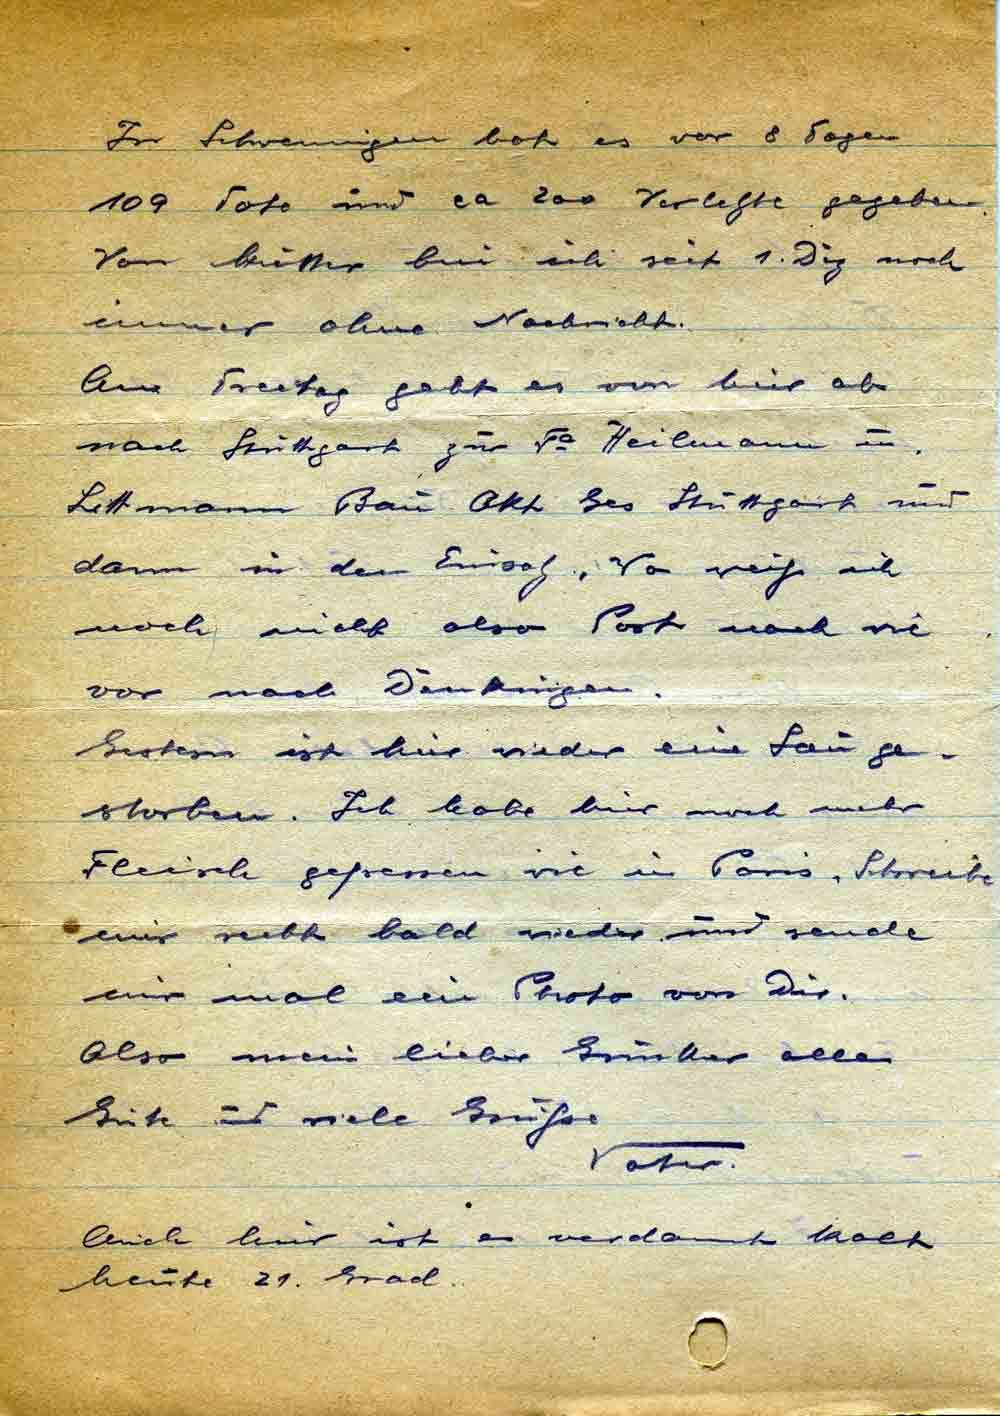 In Schwenningen hat es vor 8 Tagen
109 Tote und ca 200 Verletzte gegeben.
Von Mutter bin ich seit 1. Dez noch
immer ohne Nachricht.
Am Freitag geht es von hier ab
nach Stuttgart zur Fa Heilmann u.
Littmann Bau Akt Ges Stuttgart und
dann in den Einsatz. Wo weiß ich
noch nicht also Post nach wie
vor nach Denkingen.
Gestern ist hier wieder eine Sau ge-
storben. Ich habe hier noch mehr
Fleisch gefressen wie in Paris. Schreibe
mir recht bald wieder und sende
mir mal ein Photo von Dir.
Also mein lieber Günther alles
Gute und viele Grüße
Vater.
Auch hier ist es verdammt kalt
heute 21. Grad.